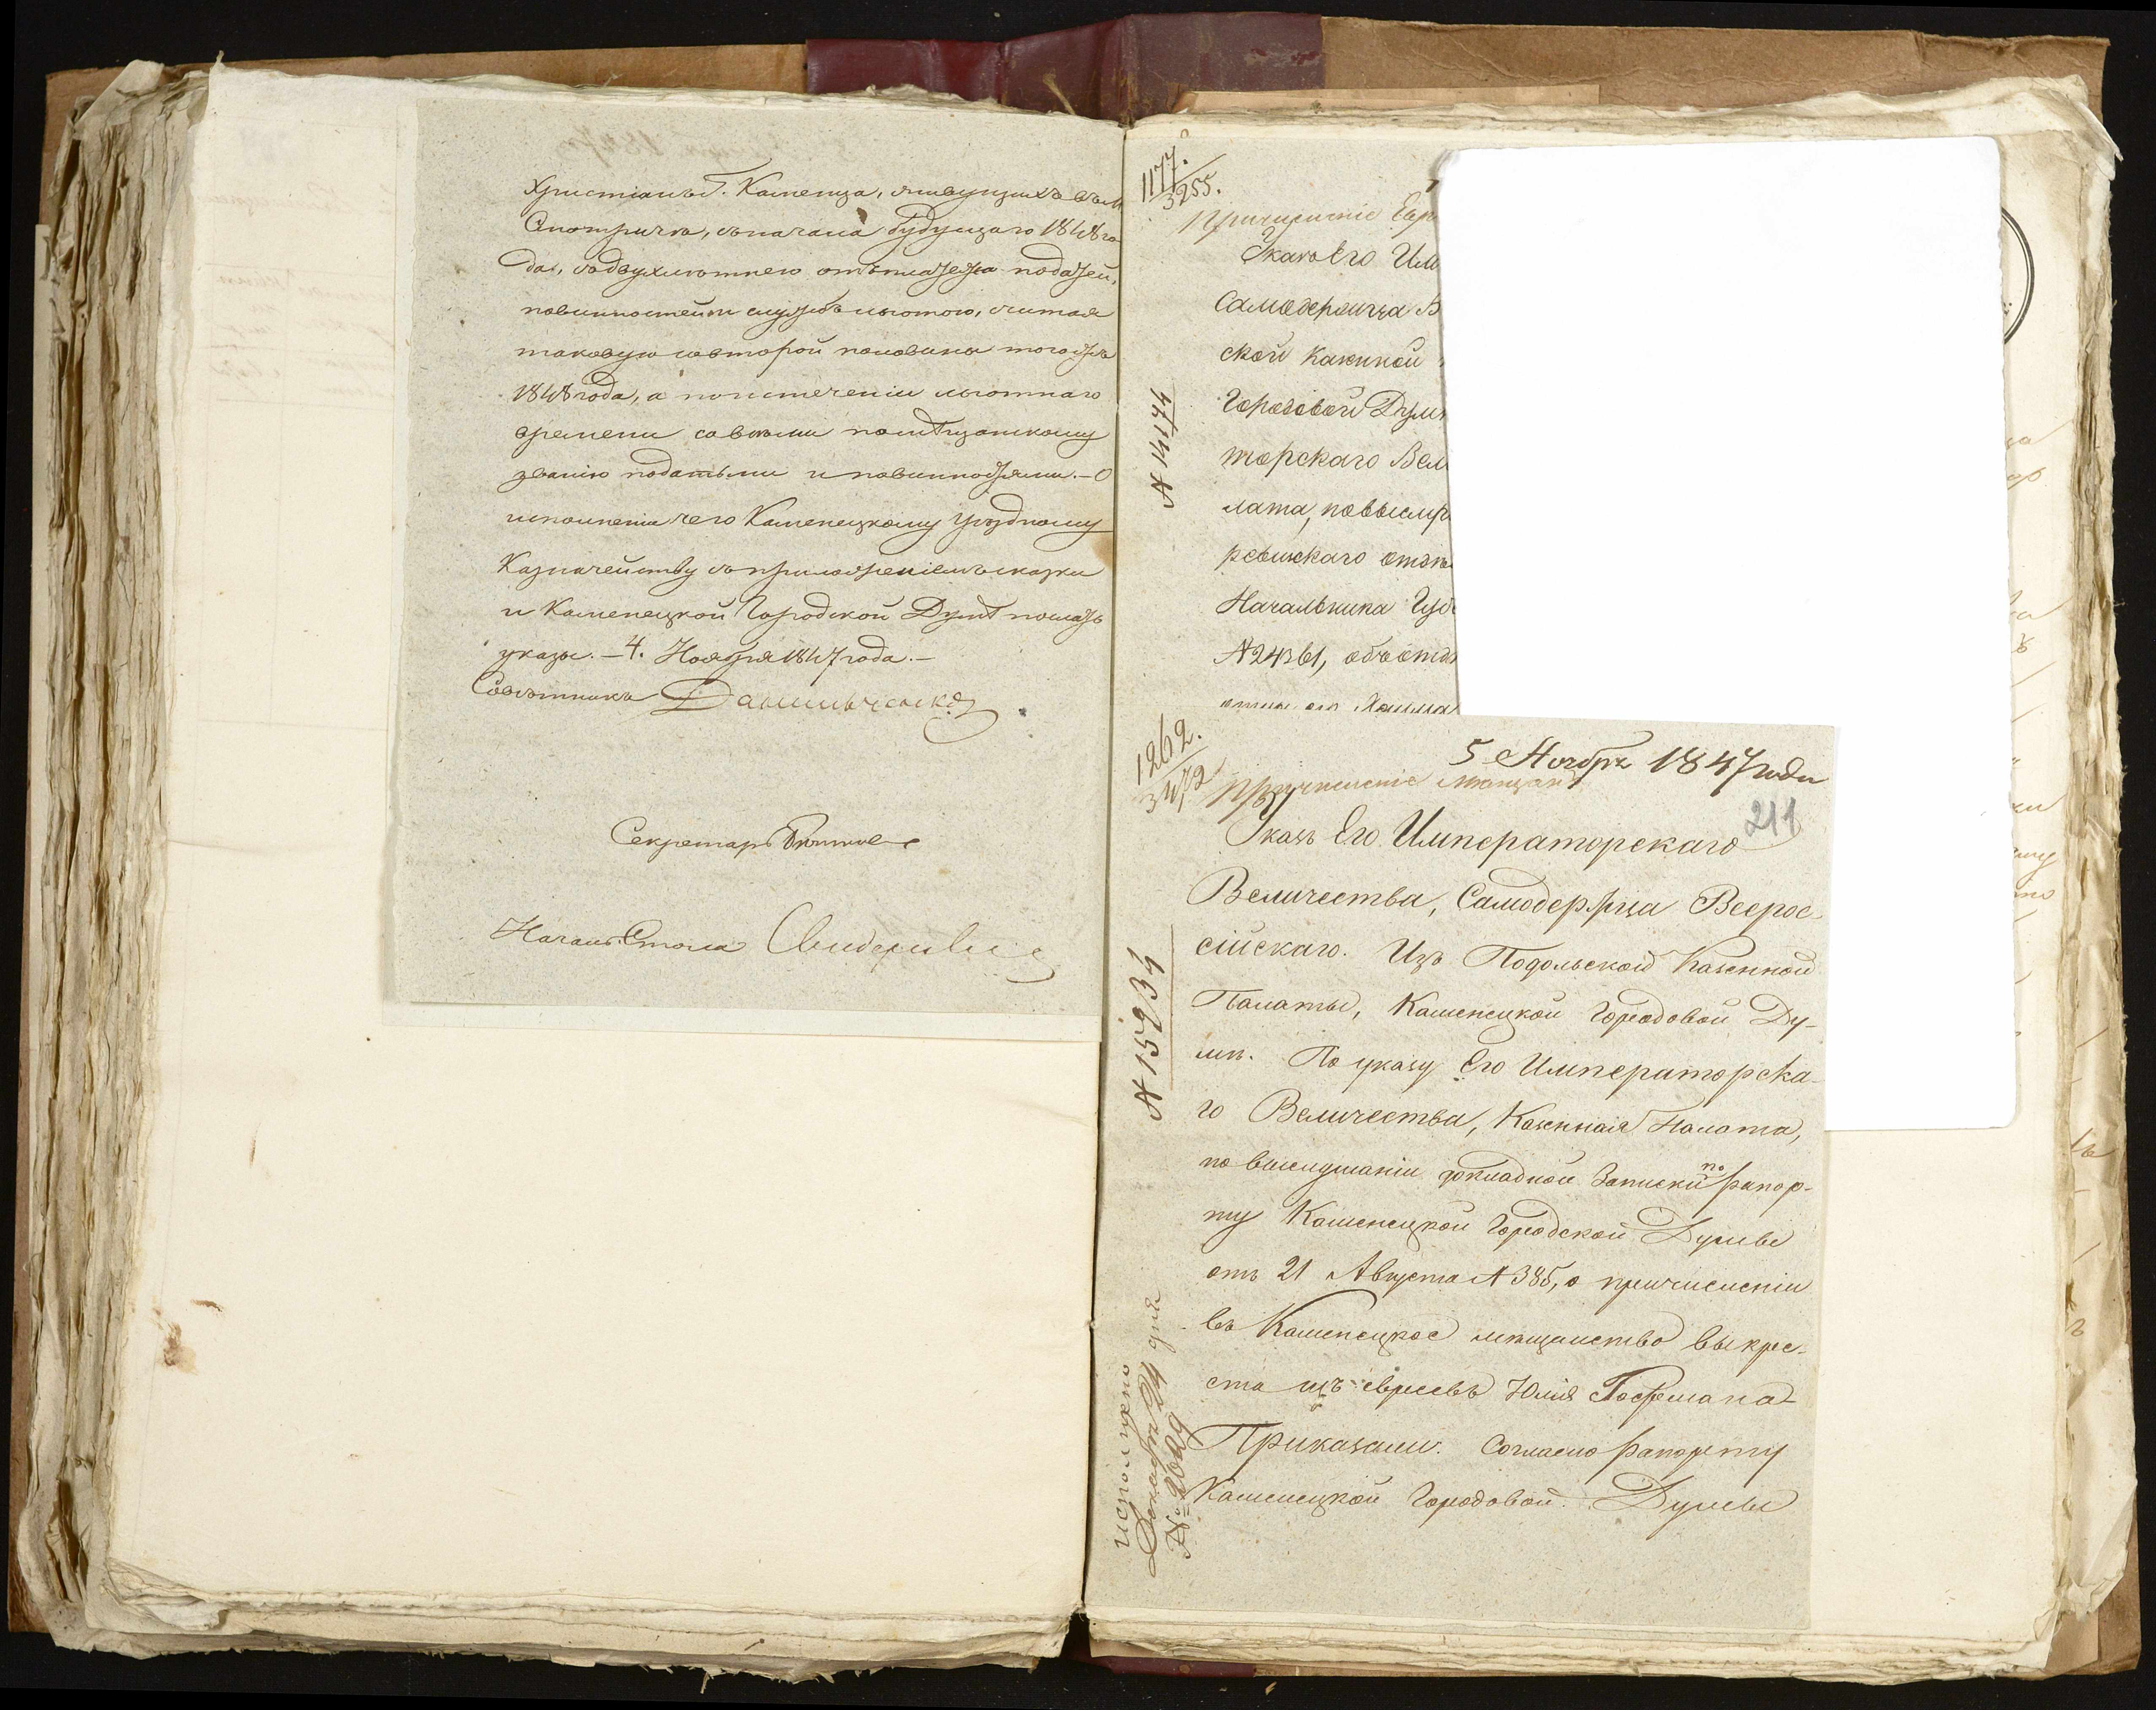 Христіанъ г. Каменца, живущихъ въ м.
Смотричѣ, съ начала будущаго 1848 го
да, съ двухлѣтнею отъ платежа податей,
повинностей и службъ льготою, считая
таковую со второй половины тогожъ
1848 года, а по истеченіи льготнаго
времени со всѣми по мѣщанскому
званію податьми и повинностями. - О
исполненіи чего Каменецкому Уѣздному
Казначейству съ приложеніемъ сказки
и Каменецкой Городской Думѣ послать
указы. - 4. Ноября 1847 года. -
Совѣтникъ
Секретарь
Началь. Стола
1177.
3255.
Причисленіе Евре
Указъ Его Им
Самодержца В
ской Казенной
Городовой Думѣ
торскаго Вел
лата, по выслу
Начальника Губ
№ 24361, объ
№ 14174
1262.
3472
5 Ноября 1847 года
Причисленіе мѣщан
211
Указъ Его Императорскаго
Величества, Самодержца Всерос-
сійскаго. Изъ Подольской Казенной
Палаты, Каменецкой Городовой Ду-
мѣ. По указу Его Императорска-
го Величества, Казенная Палата,
по выслушаніи докладной Записки по рапор-
ту Каменецкой Городской Думы
отъ 21 Августа № 385, о причисленіи
въ Каменецкое мѣщанство выкре-
ста изъ евреевъ Юлія
Приказали. Согласно рапорту
Каменецкой Городовой Думы
№ 15934
исполнено
Декабря 24 дня
№